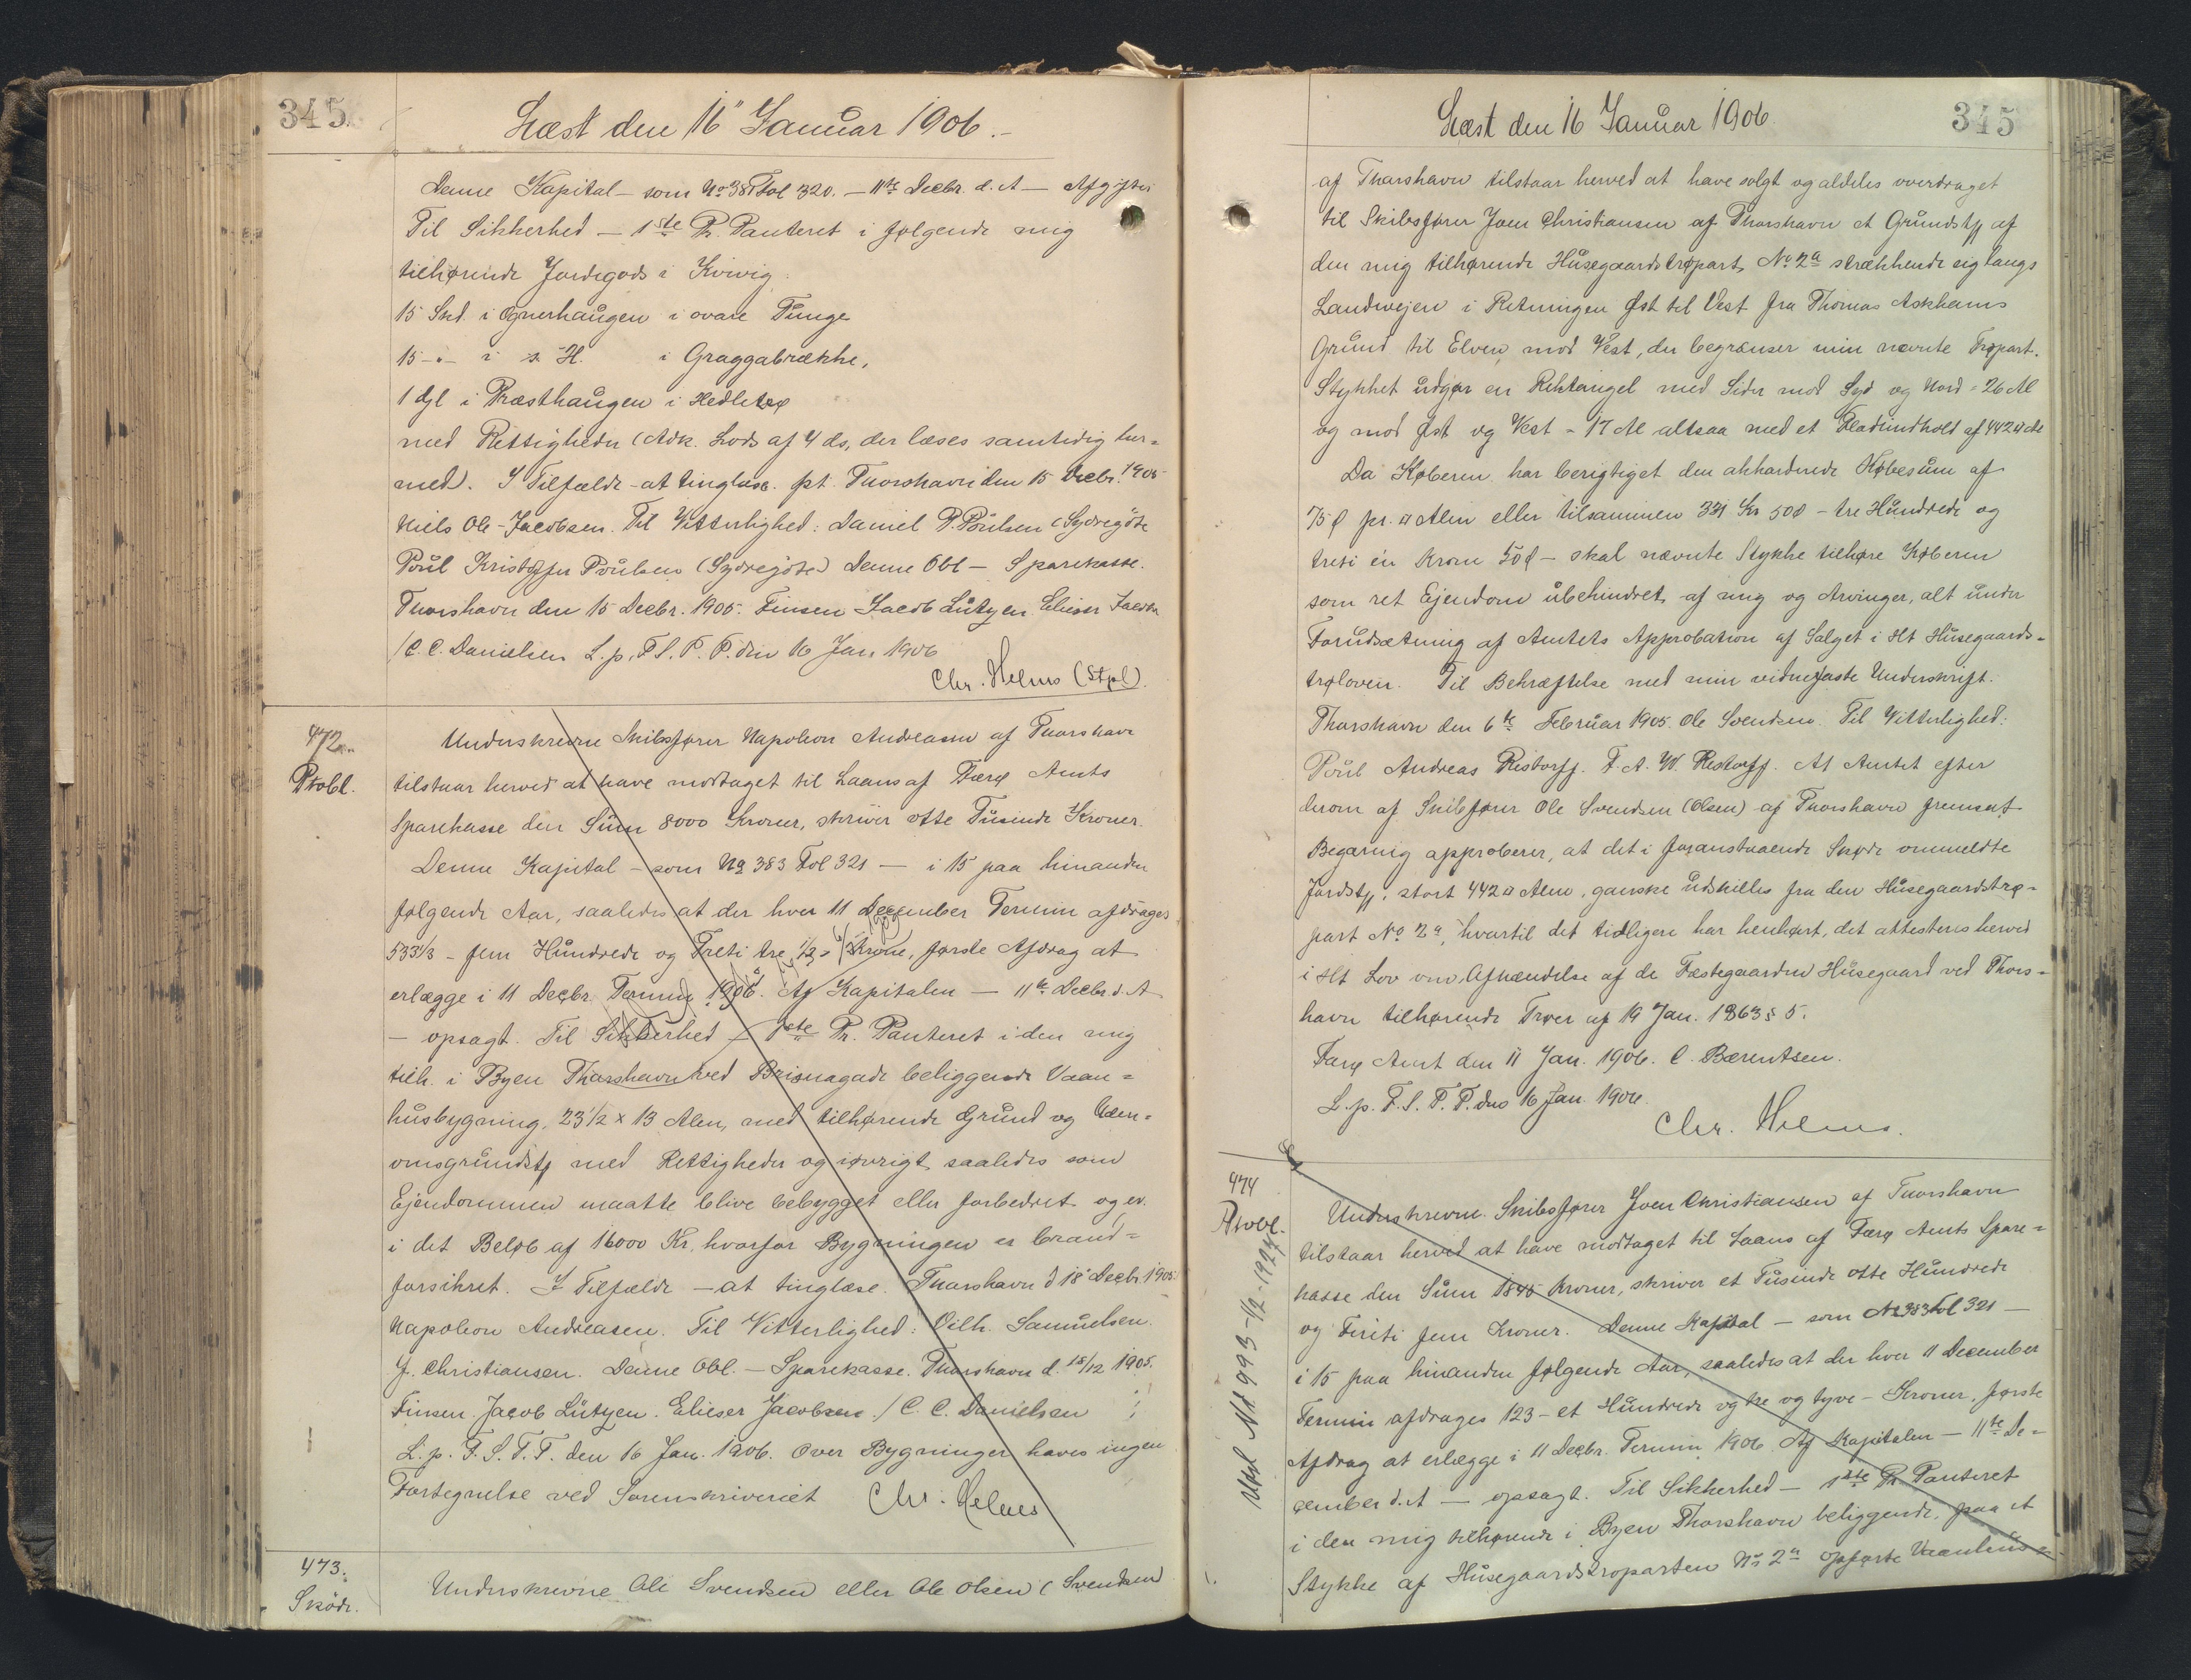 345.
Læst den 16" Januar 1906.-
Denne Kapital - som No 381 Fol 320. - 11te Decbr. d. A - Afgifter
Til Sikkerhed - 1ste Pr. Panteret i følgende mig
tilhørende Jordegods i Kvivig:
15 Skd. i Ognerhaugen i ovare Tunge
15 -"- i s. H. i Graggabrekke,
1 Gl i Præsthaugen i Hedletrø
med Rettigheder (Adk. Lods af 4 ds, der læses samtidig her=
med). I Tilfælde - at tinglæse. pt. Thorshavn den 15 Decbr. 1905
Niels Ole Jacobsen. Til Vitterlighed: Daniel P. Poulsen (Sydregöte
Poul Kristoffer Poulsen (Sydregöte) Denne Obl - Sparekasse.
Thorshavn den 15 Decbr. 1905. Finsen Jacob Lützen Elieser Jacobsen
/C. C. Danielsen L. p. F. S. T. T. den 16 Jan. 1906
Chr. Helms (Stpl).
472.
Ptobl.
Underskrevne Skibsfører Napoleon Andreasen af Thorshavn
tilstaar herved at have modtaget til Laans af Færø Amts
Sparekasse den Sum 8000 Kroner, skriver otte Tusinde Kroner.
Denne Kapital - som No 383 Fol 321 - i 15 paa hinanden
følgende Aar, saaledes at der hver 11 December Termin afdrages
533 1/3 - fem Hundrede og Treti tre 1/3 - Krone, første Afdrag at
erlægge i 11 Decbr. Termin 1906. Af Kapitalen - 11te Decbr. d. A
- opsagt. Til Sikkerhed - 1ste Pr. Panteret i den mig
tilh. i Byen Thorshavn ved Bringsnagade beliggende Vaan=
husbygning, 23 1/2 x 13 Alen, med tilhørende Grund og Uden=
omsgrundstk med Rettigheder og iøvrigt saaledes som
Ejendommen maatte blive bebygget eller forbedret og ev.
i det Beløb af 16000 Kr, hvorfor Bygningen er brand=
forsikret. I Tilfælde - at tinglæse. Thorshavn d 18 Decbr. 1905.
Napoleon Andreasen. Til Vitterlighed: Vilh. Samuelsen.
J. Christiansen. Denne Obl. - Sparekasse. Thorshavn d. 18/12 1905.
Finsen. Jacob Lützen. Elieser Jacobsen / C. C. Danielsen
L. p. F. S. T. T. den 16 Jan. 1906. Over Bygninger haves ingen
Fortegnelse ved Sorenskriveriet Chr. Helms
473.
Skøde.
Underskrevne Ole Svendsen eller Ole Olsen (Svendsen)
Læst den 16 Januar 1906
345
af Thorshavn tilstaar herved at have solgt og aldeles overdraget
til Skibsfører Joen Christiansen af Thorshavn et Grundstk af
den mig tilhørende Husegaardstrøpart No 2a strækkende sig langs
Landevejen i Retningen Øst til Vest fra Thomas Askhams
Grund til Elven mod Vest, der begrænser min nævnte Trøpart.
Stykket udgør en Rektangel med Sider mod Syd og Nord = 26 Al
og mod Øst og Vest = 17 Al altsaa med et Fladeindhold af 442 □ Al
Da Køberen har berigtiget den akkorderede Købesum af
75 Ø pr. □ Alen eller tilsammen 331 Kr 50 Ø - tre Hundrede og
treti én Krone 50 Ø - skal nævnte Stykke tilhøre Køberen
som ret Ejendom ubehindret af mig og Arvinger, alt under
Forudsætning af Amtets Approbation af Salget i Ht Husegaards=
trøloven. Til Bekræftelse med min vidnefaste Underskrift.
Thorshavn den 6te Februar 1905. Ole Svendsen. Til Vitterlighed:
Poul Andreas Restorff. F. A. W. Restorff. At Amtet efter
derom af Skibsfører Ole Svendsen (Olsen) af Thorshavn fremsat
Begæring approberer, at det i foranstaaende Skøde ommeldte
Jordstk, stort 442 □ Alen, ganske udskilles fra den Husegaardstrø=
part No 2a, hvortil det tidligere har henhørt, det attesteres herved
i Ht Lov om Afhændelse af de Fæstegaarden Husegaard ved Thors=
havn tilhørende Trøer af 19 Jan. 1863 § 5.
Færø Amt den 11 Jan. 1906. C. Bærentsen.
L. p. F. S. T. T. den 16 Jan. 1906.
Chr. Helms.
474
Ptobl.
Udsl. No 993 - 1/2 - 1924.
Underskrevne Skibsfører Joen Christiansen af Thorshavn
tilstaar herved at have modtaget til Laans af Færø Amts Spare=
kasse den Sum 1845 Kroner, skriver et Tusinde otte Hundrede
og Firiti fem Kroner. Denne Kapital - som No 383 Fol 321 -
i 15 paa hinanden følgende Aar, saaledes at der hver 11 December
Termin afdrages 123 - et Hundrede og tre og tyve - Kroner, første
Afdrag at erlægge i 11 Decbr. Termin 1906. Af Kapitalen - 11te De=
cember d. A - opsagt. Til Sikkerhed - 1ste Pr. Panteret
i den mig tilhørende i Byen Thorshavn beliggende, paa et
Stykke af Husegaardstrøparten No 2a opførte Vaanhus=